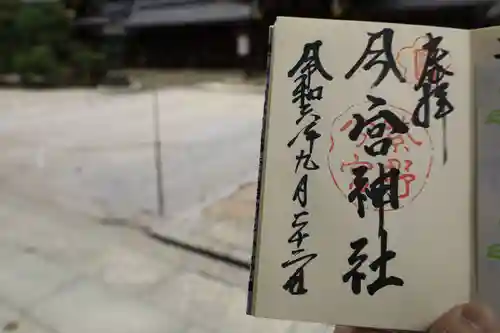 奉拝
今宮神社
令和六年九月二十二日